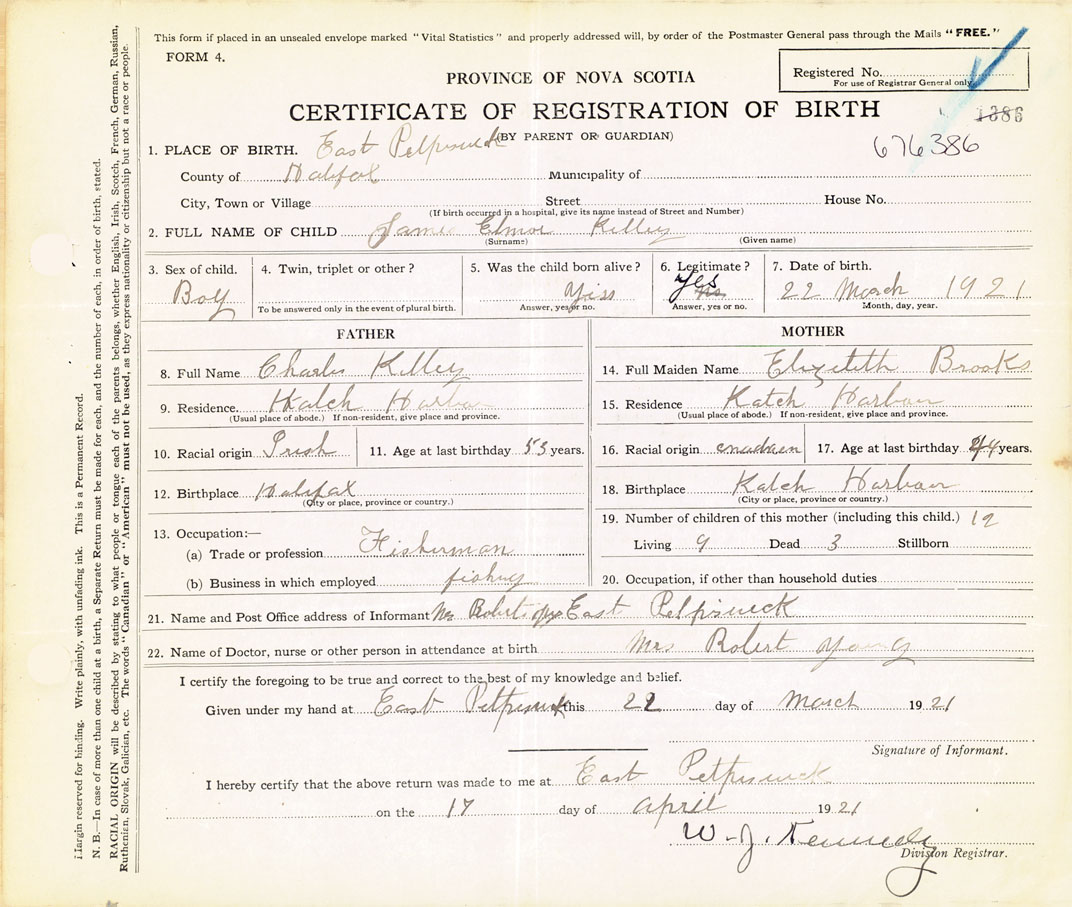 This form if placed in an unsealed envelope marked "Vital Statistics" and properly addressed will, by order of the Postmaster General pass through the Mails "FREE."
FORM 4.
PROVINCE OF NOVA SCOTIA
Registered No.
For use of Registrar General only.
CERTIFICATE OF REGISTRATION OF BIRTH
1386
(BY PARENT OR GUARDIAN)
676386
1. PLACE OF BIRTH. East Petpiswick
County of Halifax Municipality of
City, Town or Village Street House No.
(If birth occurred in a hospital, give its name instead of Street and Number)
2. FULL NAME OF CHILD James Elmor Killey
(Surname) (Given name)
3. Sex of child. 4. Twin, triplet or other? 5. Was the child born alive? 6. Legitimate? 7. Date of birth.
Boy Yiss yes 22 March 1921
To be answered only in the event of plural birth. Answer, yes or no. Answer, yes or no. Month, day, year.
FATHER
8. Full Name Charles Killey
9. Residence. Katch Harbour
(Usual place of abode.) If non-resident, give place and province.
10. Racial origin Irish 11. Age at last birthday 53 years.
12. Birthplace Halifax
(City or place, province or country.)
13. Occupation:—
(a) Trade or profession Fisherman
(b) Business in which employed fishing
MOTHER
14. Full Maiden Name Elizebith Brooks
15. Residence Katch Harbour
(Usual place of abode.) If non-resident, give place and province.
16. Racial origin 17. Age at last birthday 44 years.
18. Birthplace Katch Harbour
(City or place, province or country.)
19. Number of children of this mother (including this child.) 12
Living 9 Dead 3 Stillborn
20. Occupation, if other than household duties
21. Name and Post Office address of Informant Mrs Robert Young East Petpiswick
22. Name of Doctor, nurse or other person in attendance at birth Mrs Robert Young
I certify the foregoing to be true and correct to the best of my knowledge and belief.
Given under my hand at East Petpiswick this 22 day of March 1921
Signature of Informant.
I hereby certify that the above return was made to me at East Petpiswick
on the 17 day of april 1921
W. J. Kennedy
Division Registrar.
Margin reserved for binding. Write plainly, with unfading ink. This is a Permanent Record.
N. B.—In case of more than one child at a birth, a Separate Return must be made for each, and the number of each, in order of birth, stated.
RACIAL ORIGIN will be described by stating to what people or tongue each of the parents belongs, whether English, Irish, Scotch, French, German, Russian,
Ruthenian, Slovak, Galician, etc. The words "Canadian" or "American" must not be used, as they express nationality or citizenship but not a race or people.